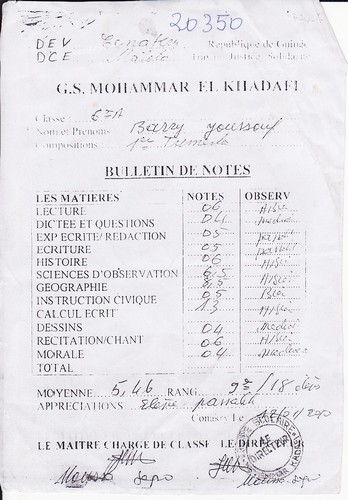 20350
DEV Conakry République de Guinée
DCE Matoto Travail Justice Solidarité
G.S. MOHAMMAR EL KHADAFI
Classe : 6èA
Nom et Prénoms Barry Youssouf
Compositions 1er Trimestre
BULLETIN DE NOTES
LES MATIERES NOTES OBSERV
LECTURE 06 A.Bien
DICTEE ET QUESTIONS 04 médiocre
EXP ECRITE/ REDACTION 05 passable
ECRITURE 05 passable
HISTOIRE 06 A.Bien
SCIENCES D'OBSERVATION 6,5 A.Bien
GEOGRAPHIE
INSTRUCTION CIVIQUE 05
CALCUL ECRIT 13 A.Bien
DESSINS 04 médiocre
RECITATION/CHANT 06 A.Bien
MORALE 04 médiocre
TOTAL
MOYENNE 5,46 RANG 9è /18 élèves
APPRECIATIONS Elève passable
Conakry Le
LE MAITRE CHARGE DE CLASSE LE DIRECTEUR